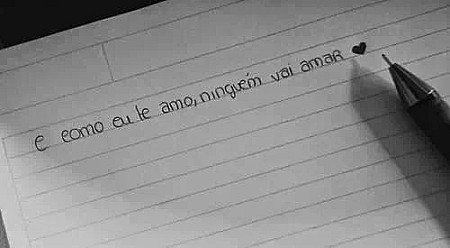 e como eu le amo, ninguém vai amar ♥